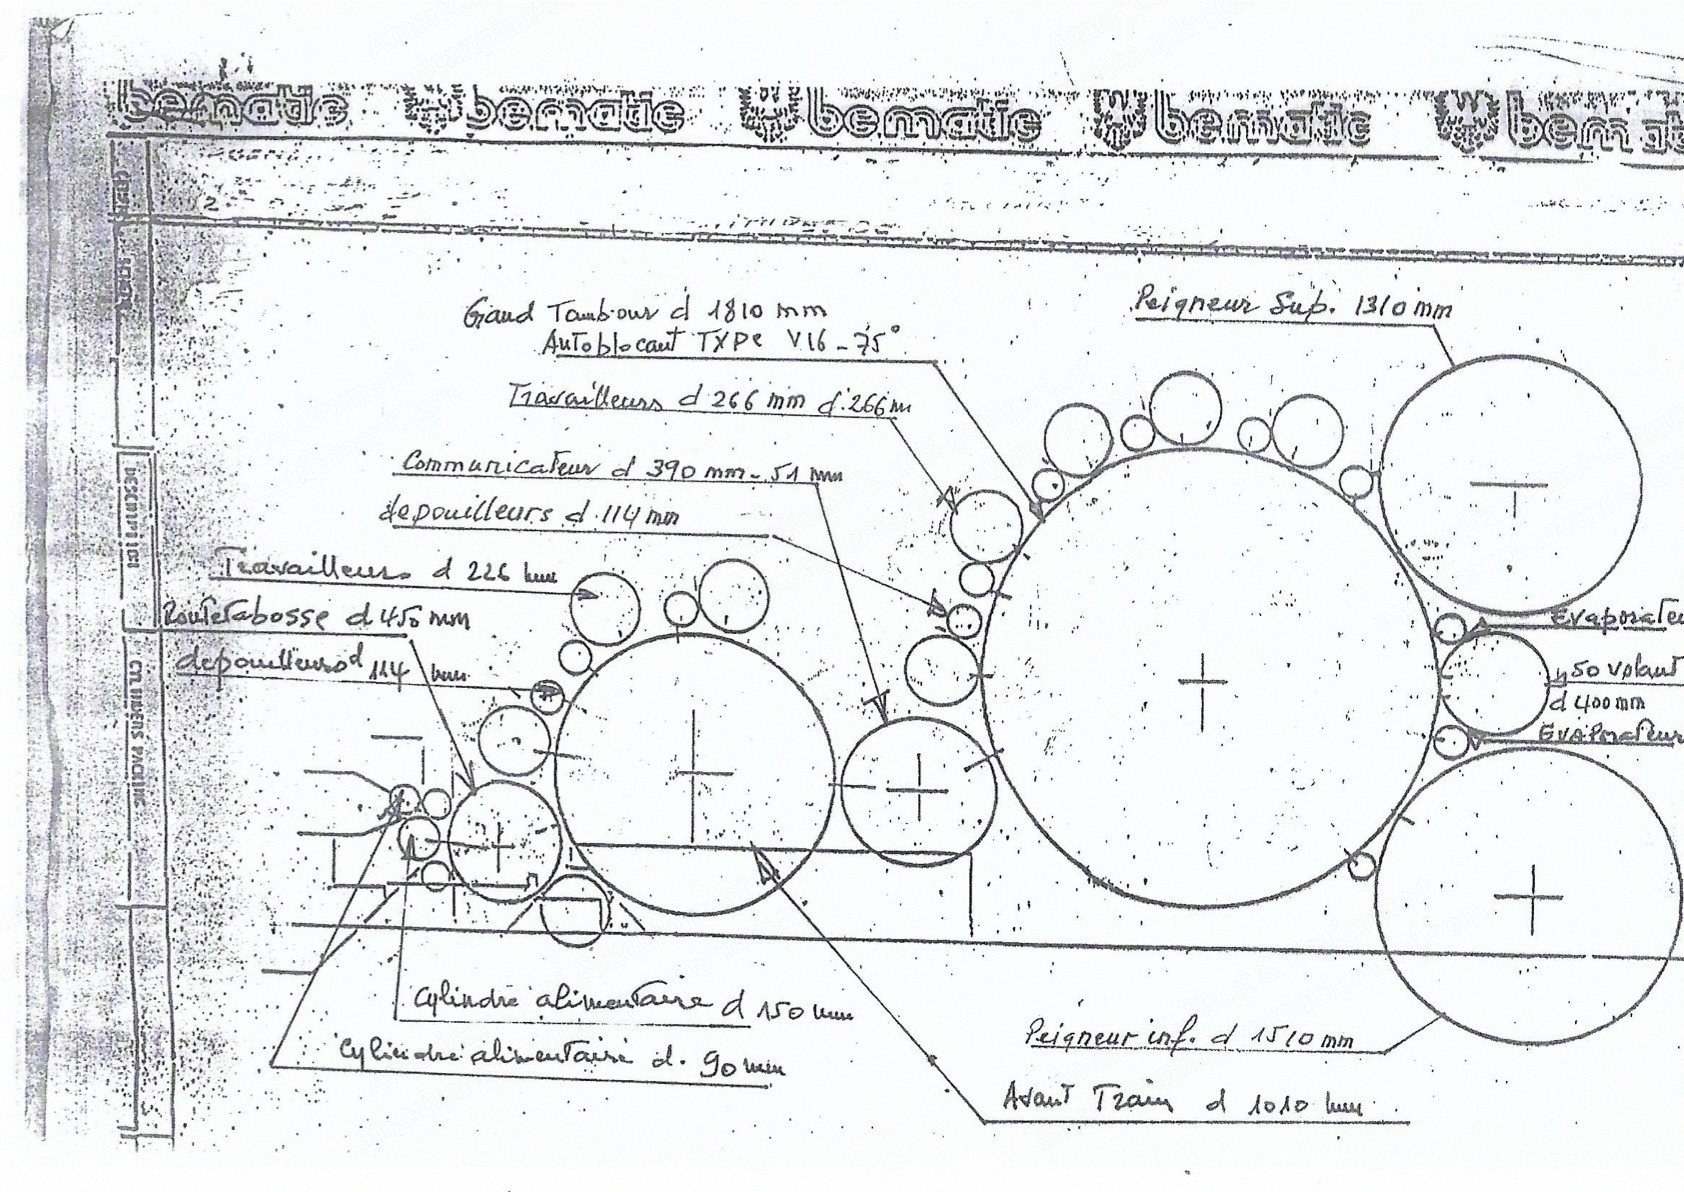 bematic bematic bematic bematic bemat
Grand Tambour d 1810 mm
Autoblocant TYPe V16 - 75°
Peigneur Sup. 1310 mm
Travailleurs d 266 mm d. 266 m
Communicateur d 390 mm - 51 mm
depouilleurs d. 114 mm
Travailleurs d 226 mm
Routetabosse d 450 mm
depouilleurs d 114 mm
Evaporateu
50 Volant
d 400 mm
Evaporateur
DESCRIPTION
CYLINDERS PACKING
Cylindre alimentaire d 150 mm
Cylindre alimentaire d. 90 mm
Peigneur inf. d 1510 mm
Avant Train d 1010 mm